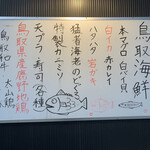 鳥取海鮮
本マグロ 白バイ貝
白イカ 赤カレイ
ハタハタ 岩ガキ
猛者海老のどぐろ
特製カニミソ
天プラ 寿司各種
鳥取県産鹿野地鶏
鳥取和牛 大山鶏